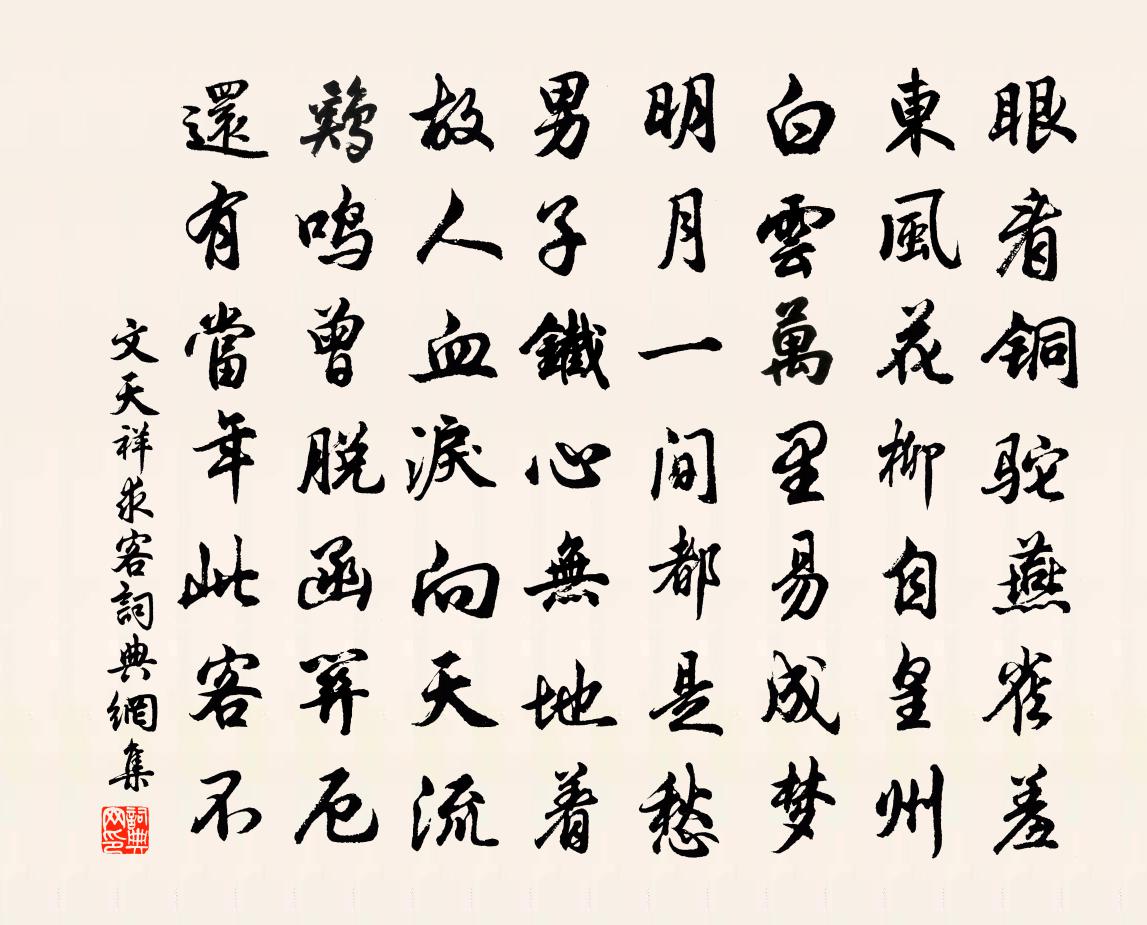 眼看銅駝燕雀羞
東風花柳自皇州
白雲萬里易成梦
明月一間都是愁
男子鐵心無地着
故人血淚向天流
鷄鳴曾脫函關厄
還有當年此客不
文天祥求客詞典網集
詞典网印